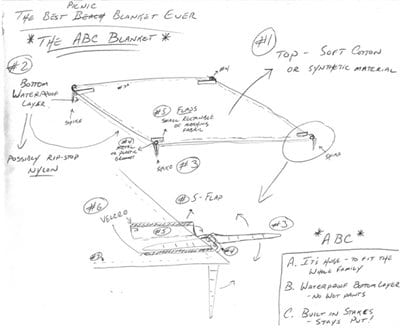 PICNIC
THE BEST BEACH BLANKET EVER
* THE ABC BLANKET *
#1
TOP - SOFT COTTON
OR SYNTHETIC MATERIAL
#2
BOTTOM
WATERPROOF
LAYER
SPIKE
POSSIBLY RIP-STOP
NYLON
#4
#5 FLAPS
SMALL RECTANGLE
OF
FABRIC
#4
METAL
OR PLASTIC
GROMMET
SPIKE #3
SPIKE
#6
VELCRO
#5-FLAP
#3
#5
#4
* ABC *
A. IT'S HUGE - TO FIT THE
WHOLE FAMILY
B. WATERPROOF BOTTOM LAYER
- NO WET PANTS
C. BUILT IN STAKES
- STAYS PUT!